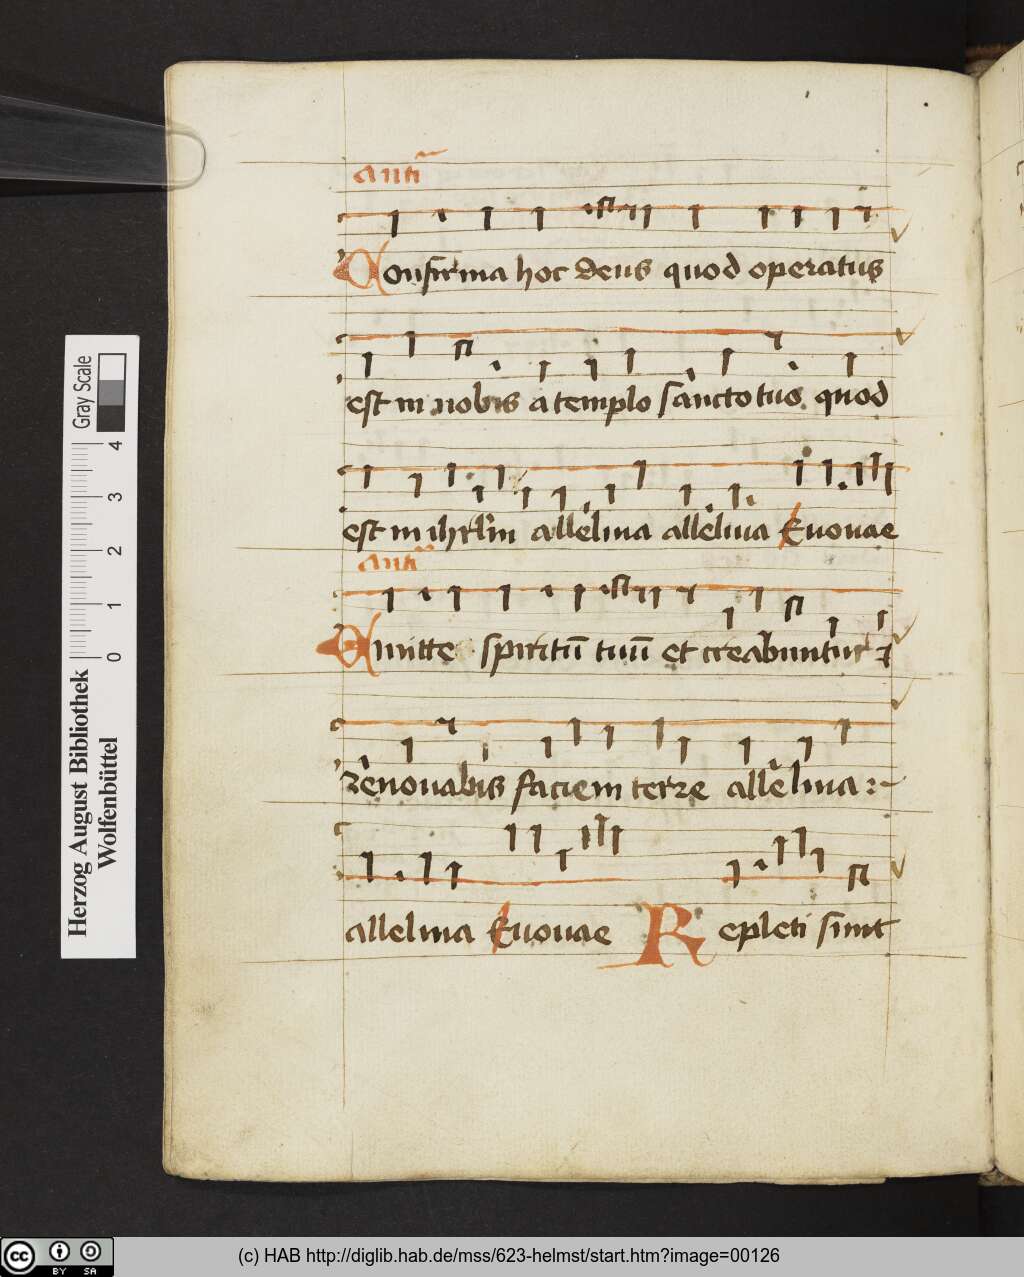 antī
Confirma hoc deus quod operatus
est in nobis a templo sancto tuo quod
est in ihrl̄m alleluia alleluia Euouae
antī
Emitte spiritū tuū et creabuntur ⁊
renouabis faciem terre alleluia
alleluia Euouae Repleti sunt
Herzog August Bibliothek
Wolfenbüttel
Gray Scale
0 1 2 3 4
cc BY SA
(c) HAB http://diglib.hab.de/mss/623-helmst/start.htm?image=00126